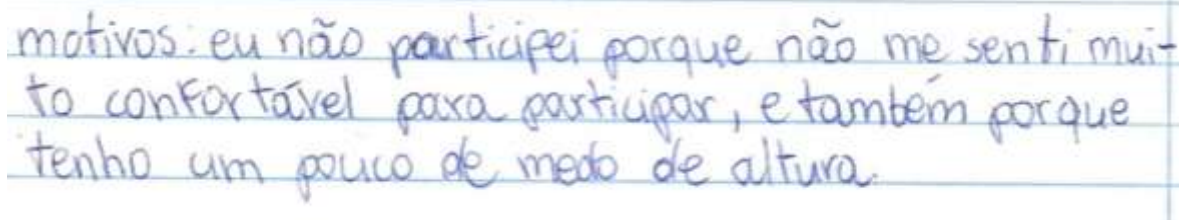 motivos: eu não participei porque não me senti mui-
to confortável para participar, e também porque
tenho um pouco de medo de altura.